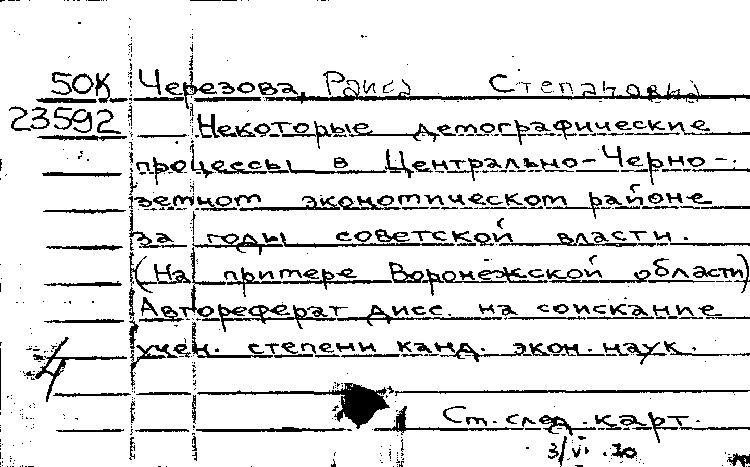 50К Черезова, Раиса Степановна
23592 Некоторые демографические
процессы в Центрально-Черно-
земном экономическом районе
за годы советской власти.
(На примере Воронежской области)
Автореферат дисс. на соискание
учен. степени канд. экон. наук.
4
Ст. след. карт.
3/VI.70